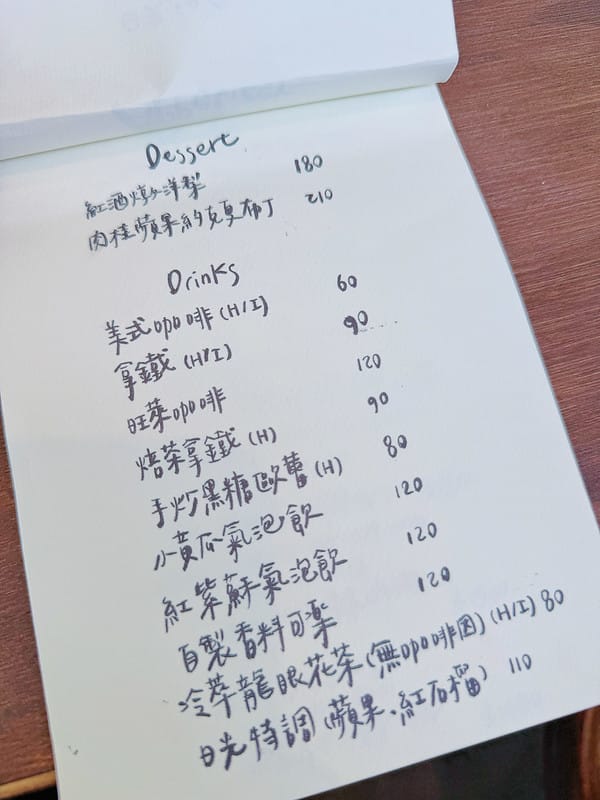 Dessert
紅酒燉洋梨 180
肉桂蘋果約克夏布丁 210
Drinks
美式咖啡(H/I) 60
拿鐵(H/I) 90
旺萊咖啡 120
焙茶拿鐵(H) 90
手炒黑糖歐蕾(H) 80
小黃瓜氣泡飲 120
紅紫蘇氣泡飲 120
自製香料可樂 120
冷萃龍眼花茶(無咖啡因)(H/I) 80
日光特調(蘋果、紅石榴) 110